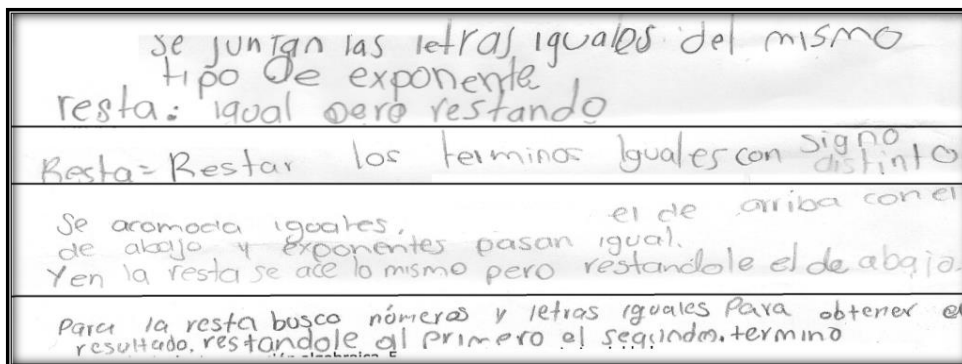 se juntan las letras iguales del mismo
tipo de exponente
resta: igual pero restando
Resta = Restar los terminos Iguales con signo distinto
Se acomoda iguales, el de arriba con el
de abajo y exponentes pasan igual.
Y en la resta se ace lo mismo pero restandole el de abajo.
Para la resta busco números y letras iguales Para obtener el
resultado, restandole al primero el segundo. termino